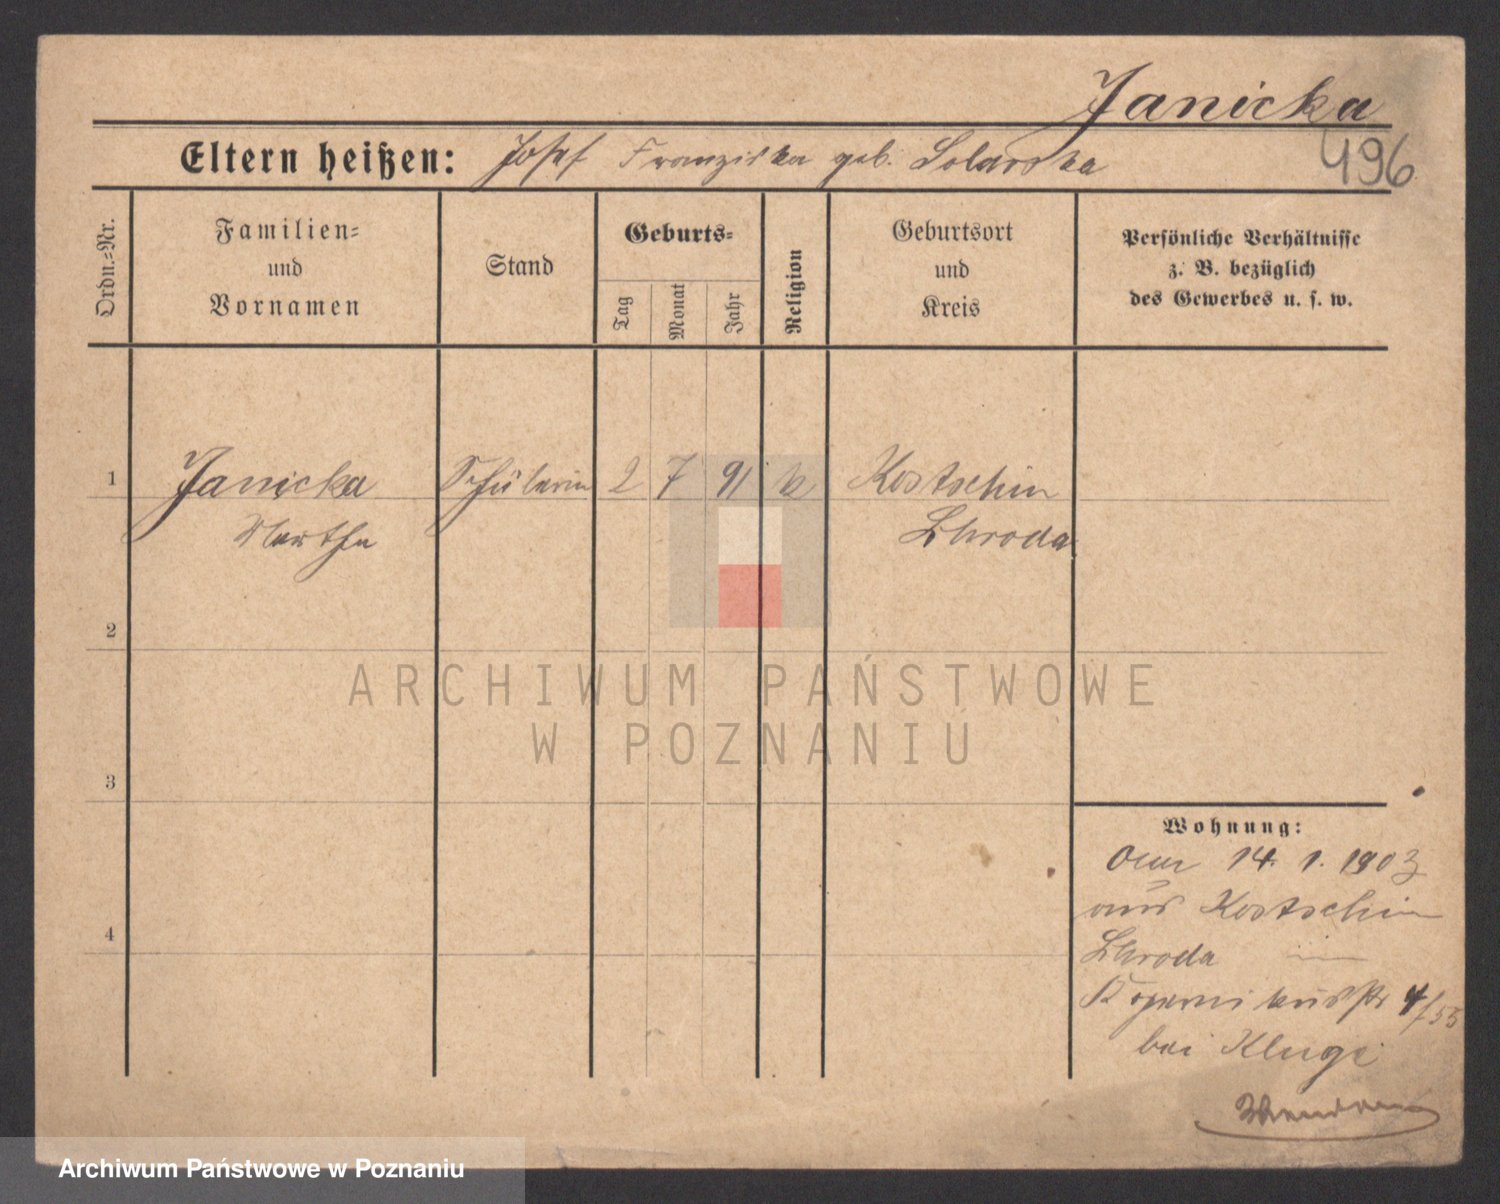 Janicka
496
Eltern heißen: Josef Franziska geb. Solarska
Ordn.-Nr.
Familien-
und
Vornamen
Stand
Geburts-
Tag
Monat
Jahr
Religion
Geburtsort
und
Kreis
Persönliche Verhältnisse
z. B. bezüglich
des Gewerbes u. s. w.
1 Janicka Schülerin 2 7 91 k Kostschin
Martha Schroda
2
3
4
Wohnung:
14. 1. 1903
aus Kostschin
Schroda
Kopernikusstr 4/55
bei Kluge
ARCHIWUM PAŃSTWOWE
W POZNANIU
Archiwum Państwowe w Poznaniu